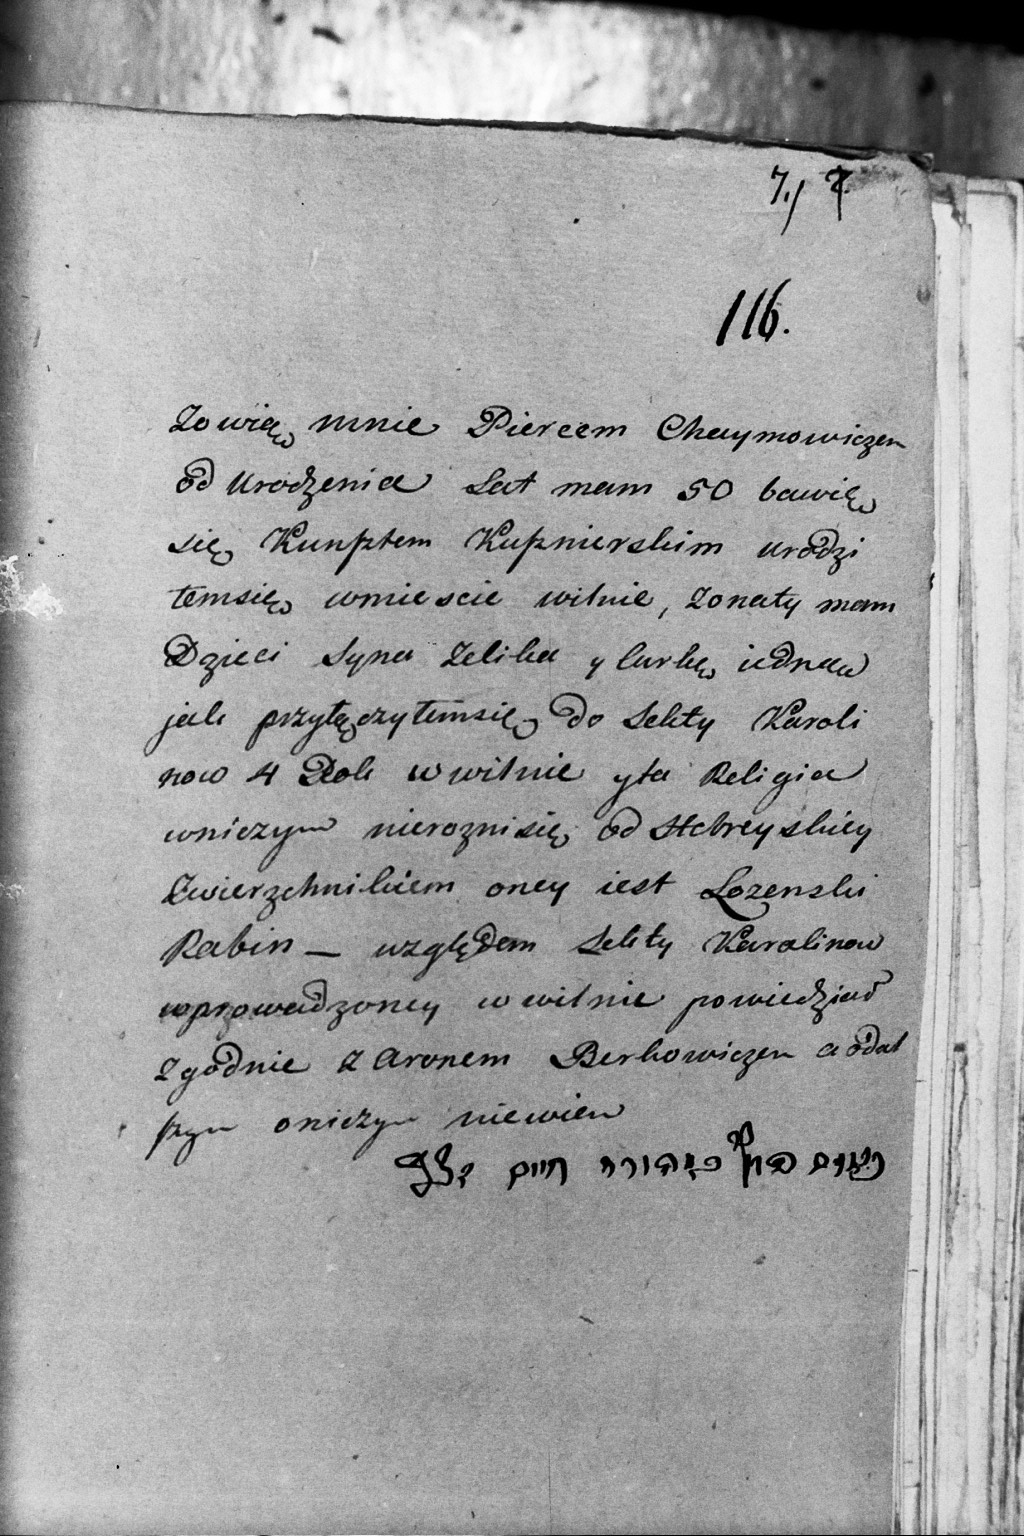 7./ 7.
116.
Zowią mnie Piercem Chaymowiczem
od urodzenia Lat mam 50 bawię
się Kunsztem Kuśznierskim urodzi
łemsię wmieście wilnie, żonaty mam
Dzieci Syna Zelika y curkę iedną
jak przyłączyłemsię do Sekty Karoli
now 4 Rok w wilnie yta Religia
wniczym nierożnisię od Hebreyskiey
Zwierzchnikiem oney iest Lozenski
Rabin — względem Sekty Karolinow
wprowadzoney w wilnie powiedział
zgodnie z Aronem Berkowiczem a odal
szym oniczym niewiem
חיים